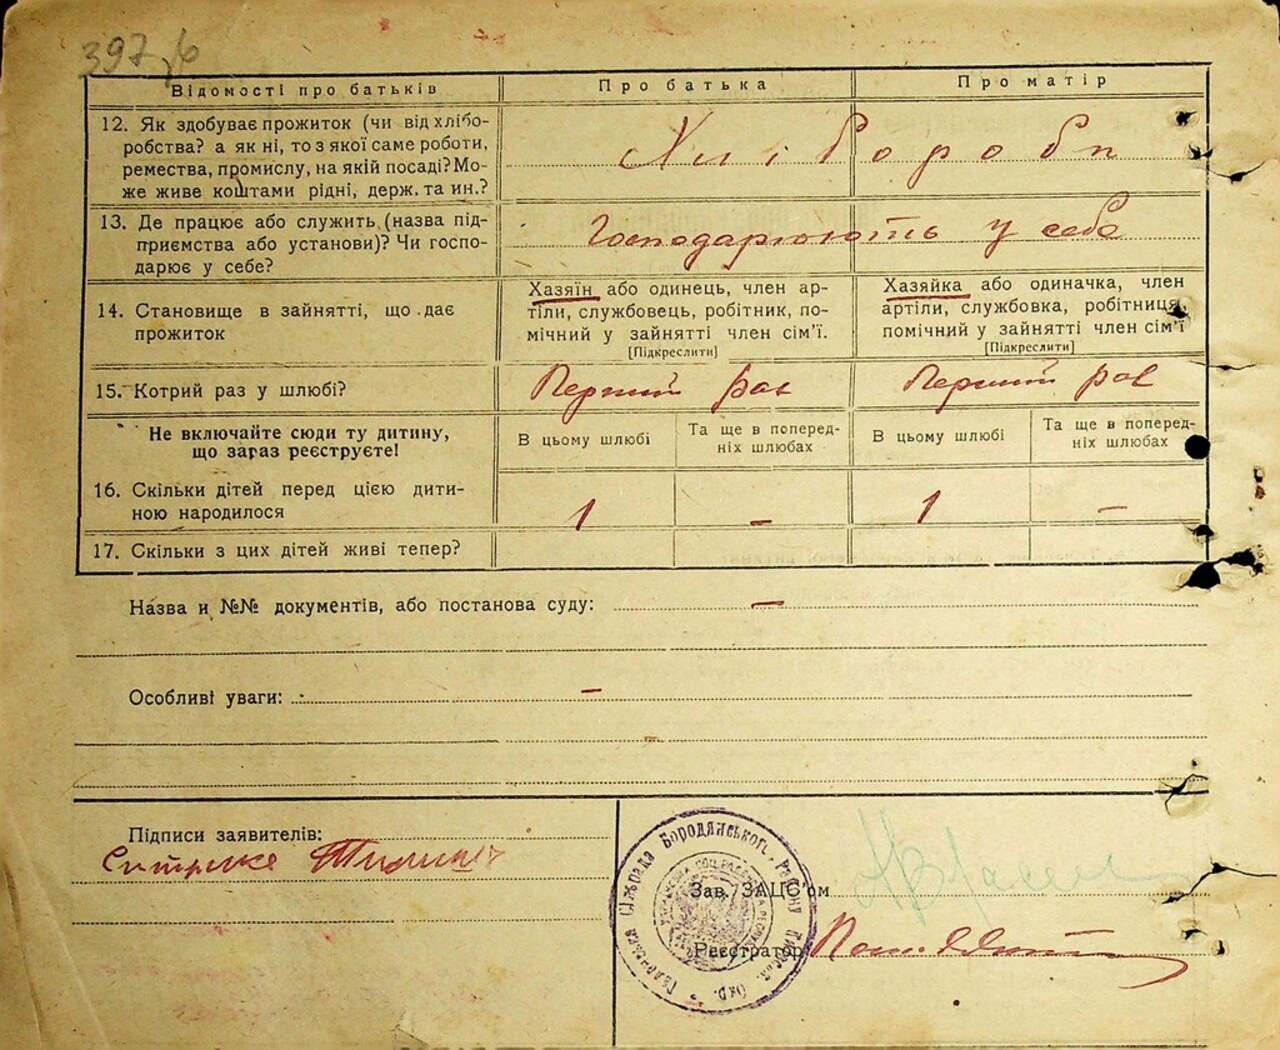 Відомості про батьків
Про батька
Про матір
12. Як здобуває прожиток (чи від хлібо-
робства? а як ні, то з якої саме роботи,
ремества, промислу, на якій посаді? Мо-
же живе коштами рідні, держ. та ин.?
Хлібороби
13. Де працює або служить (назва під-
приємства або установи)? Чи госпо-
дарює у себе?
Господарюють у себе
14. Становище в зайнятті, що дає
прожиток
Хазяїн або одинець, член ар-
тіли, службовець, робітник, по-
мічний у зайнятті член сім'ї.
[Підкреслити]
Хазяйка або одиначка, член
артіли, службовка, робітниця,
помічний у зайнятті член сім'ї
[Підкреслити]
15. Котрий раз у шлюбі?
Перший раз
Перший раз
Не включайте сюди ту дитину,
що зараз реєструєте!
В цьому шлюбі
Та ще в поперед-
ніх шлюбах
В цьому шлюбі
Та ще в поперед-
ніх шлюбах
16. Скільки дітей перед цією дити-
ною народилося
1
–
1
–
17. Скільки з цих дітей живі тепер?
Назва и №№ документів, або постанова суду: –
Особливі уваги: –
Підписи заявителів:
Зав. ЗАЦС'ом
Реєстратор
Сільрада Бородянського Району